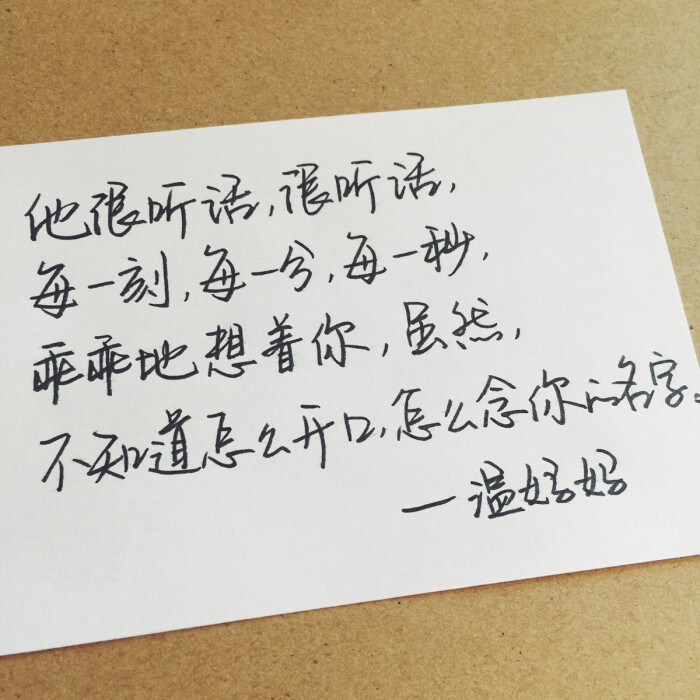 他很听话,很听话,
每一刻,每一分,每一秒,
乖乖地想着你,虽然,
不知道怎么开口,怎么念你的名字。
—温好妈